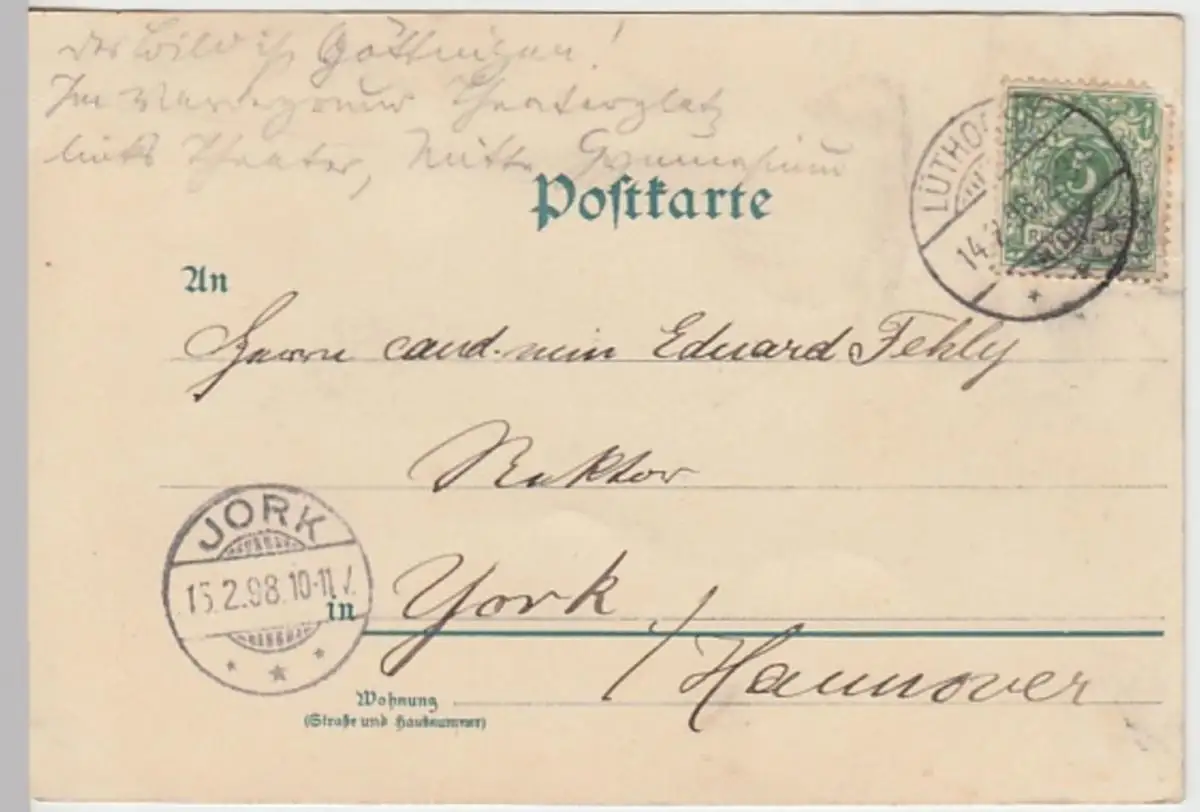 das Bild ist Göttingen!
Im Vordergrund Theaterplatz
links Theater, Mitte Gymnasium
Postkarte
LÜTHO
14.2.98.
5
REICHSPOST
An
Herrn cand. min Eduard Fehly
Rektor
JORK
15.2.98.10-11V.
in York
/Hannover
Wohnung
(Straße und Hausnummer)